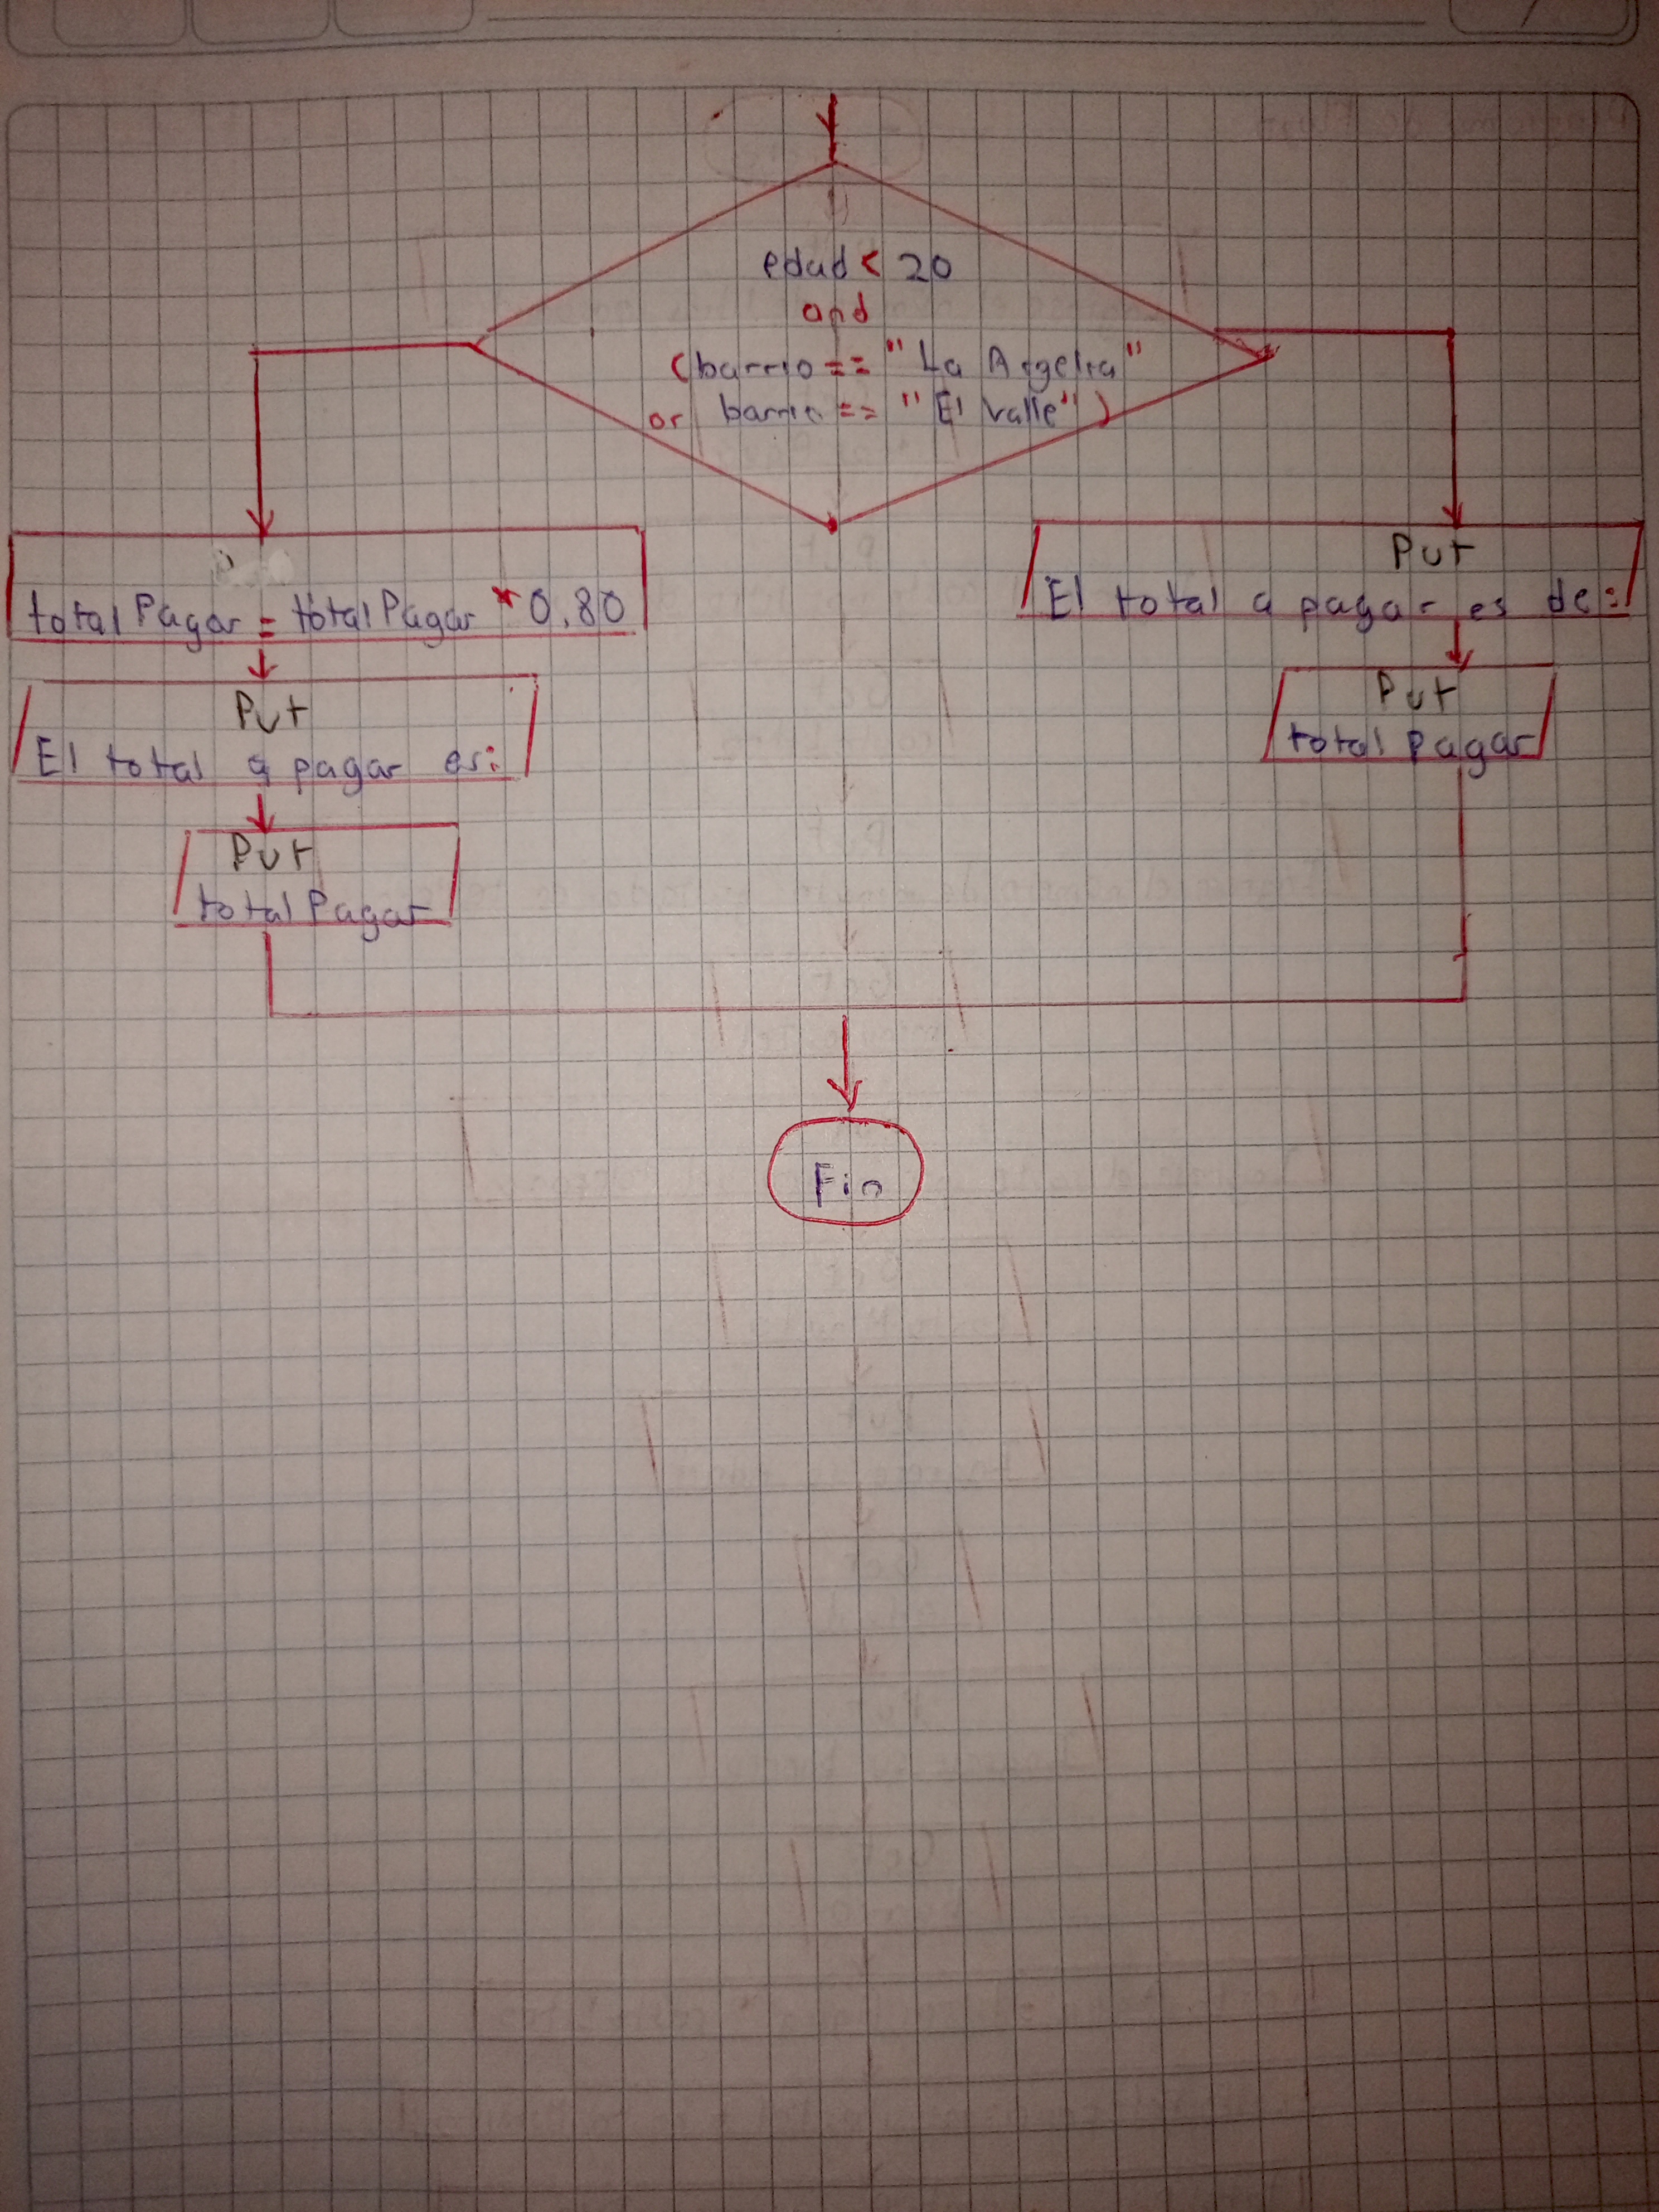 edad < 20
and
(barrio == "La Argelia"
or barrio == "El Valle")
total Pagar = total Pagar * 0.80
Put
El total a pagar es:
Put
total Pagar
Put
El total a pagar es de:
Put
total pagar
Fin